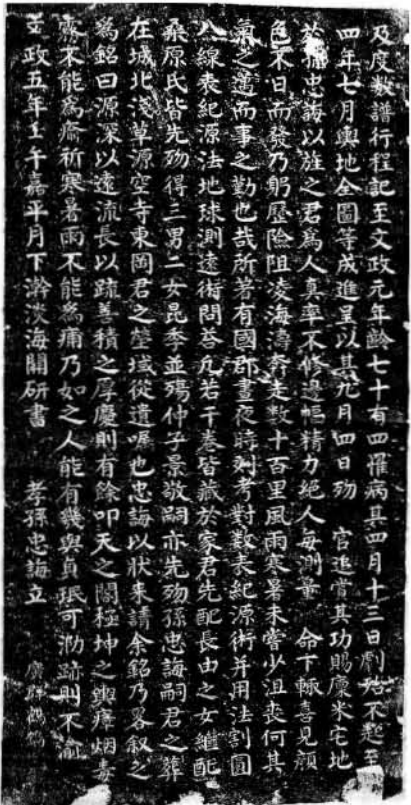 及度數譜行程記至文政元年齡七十有四罹病其四月十三日劇殆不起至
四年七月輿地全圖等成進呈以其九月四日歿　官追賞其功賜廩米宅地
於孫忠誨以旌之君爲人真率不修邊幅精力絕人每測量　命下輒喜見顏
色不日而發乃躬歷險阻凌海濤奔走數十百里風雨寒暑未嘗少沮喪何其
氣之邁而事之勤也哉所著有國郡晝夜時刻考對數表紀源術并用法割圓
八線表紀源法地球測遠術問荅凡若干卷皆藏於家君先配長由之女繼配
桑原氏皆先歿得三男二女昆季並殤仲子景敬嗣亦先歿孫忠誨嗣君之葬
在城北淺草源空寺東岡君之塋域從遺囑也忠誨以狀来請余銘乃畧叙之
爲銘曰源深以遠流長以疏善積之厚慶則有餘叩天之閶極坤之輿瘴烟毒
霧不能爲癘祈寒暑雨不能爲痡乃如之人能有幾與貞珉可泐跡則不渝
文政五年壬午嘉平月下澣淡海關研書　孝孫忠誨立　廣群鶴鐫